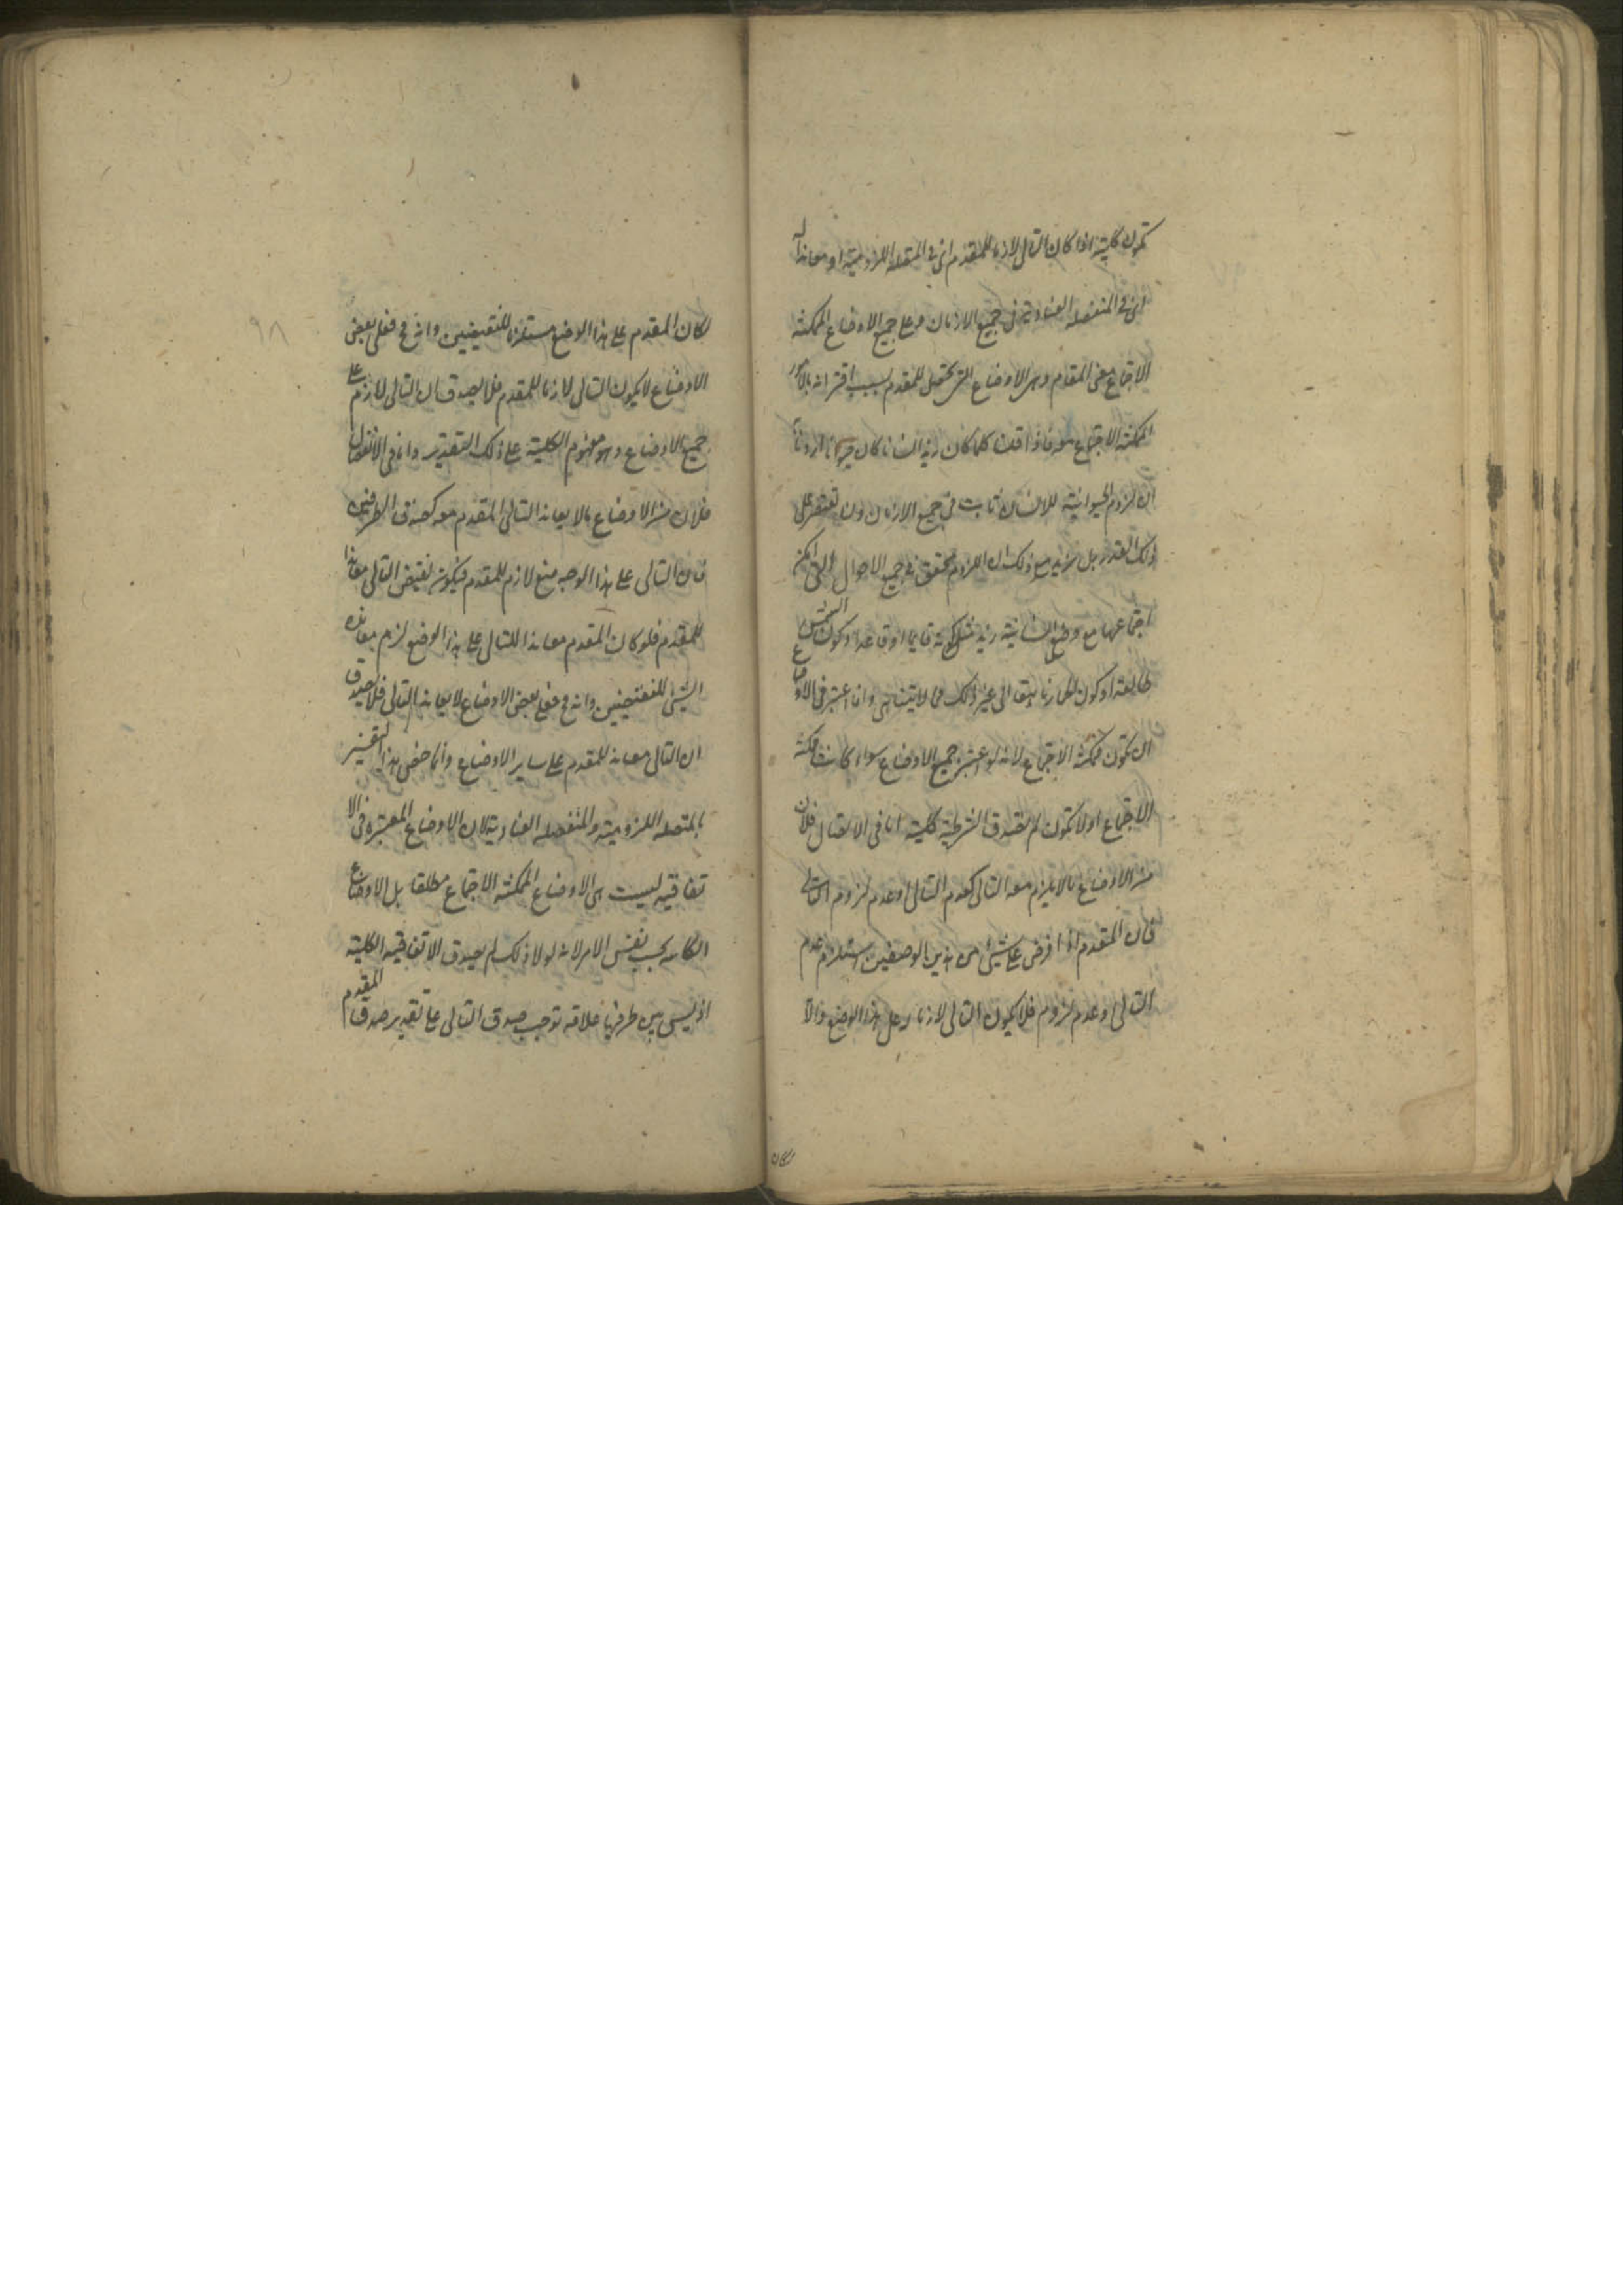 تكون كلية اذا كان التالى لازما للمقدم اى فى المتصلة اللزومية او معاندا له
اى فى المنفصلة العنادية فى جميع الازمان وعلى جميع الاوضاع الممكنة
الاجتماع مع المقدم وهى الاوضاع التى تحصل للمقدم بسبب اقترانه بالامور
الممكنة الاجتماع معه فاذا قلنا كلما كان زيد انسانا كان حيوانا اردنا
ان لزوم الحيوانية للانسان ثابت فى جميع الازمان ولن نقتصر على
ذلك القدر بل نريد مع ذلك ان اللزوم متحقق فى جميع الاحوال التى امكن
اجتماعها مع وضع انسانية زيد مثل كونه قايما او قاعدا او كون الشمس
طالعة او كون الحمار ناهقا الى غير ذلك مما لا يتناهى وانما اعتبر فى الاوضاع
ان تكون ممكنة الاجتماع لانه لو اعتبر جميع الاوضاع سواء كانت ممكنة
الاجتماع او لا تكون لم تصدق الشرطية كلية اما فى الاتصال فلان
من الاوضاع ما لا يلزم معه التالى كعدم التالى او عدم لزوم التالى
فان المقدم اذا فرض على شئ من هذين الوضعين استلزم عدم
التالى او عدم لزوم فلا يكون التالى لازما له على هذا الوضع والا
لكان
٩٨
لكان المقدم على هذا الوضع مستلزما للنقيضين وانه مح فعلى بعض
الاوضاع لا يكون التالى لازما للمقدم فلا يصدق ان التالى لازم على
جميع الاوضاع وهو مفهوم الكلية على ذلك التقدير واما فى الانفصال
فلان من الاوضاع ما لا يعاند التالى المقدم معه كصدق الطرفين
فان التالى على هذا الوجه منع لازم للمقدم فيكون نقيض التالى معاندا
للمقدم فلو كان المقدم معاندا للتالى على هذا الوضع لزم معانده
الشئ للنقيضين وانه مح فعلى بعض الاوضاع لا يعاند التالى فلا يصدق
ان التالى معاند للمقدم على ساير الاوضاع وانما خص هذا التفسير
بالمتصلة اللزومية والمنفصلة العنادية لان الاوضاع المعتبرة فى الا
تفاقية ليست هى الاوضاع الممكنة الاجتماع مطلقا بل الاوضاع
الكائنة بحسب نفس الامر لانه لولا ذلك لم يصدق الاتفاقية الكلية
اذ ليس بين طرفيها علاقة توجب صدق التالى على تقدير صدق المقدم